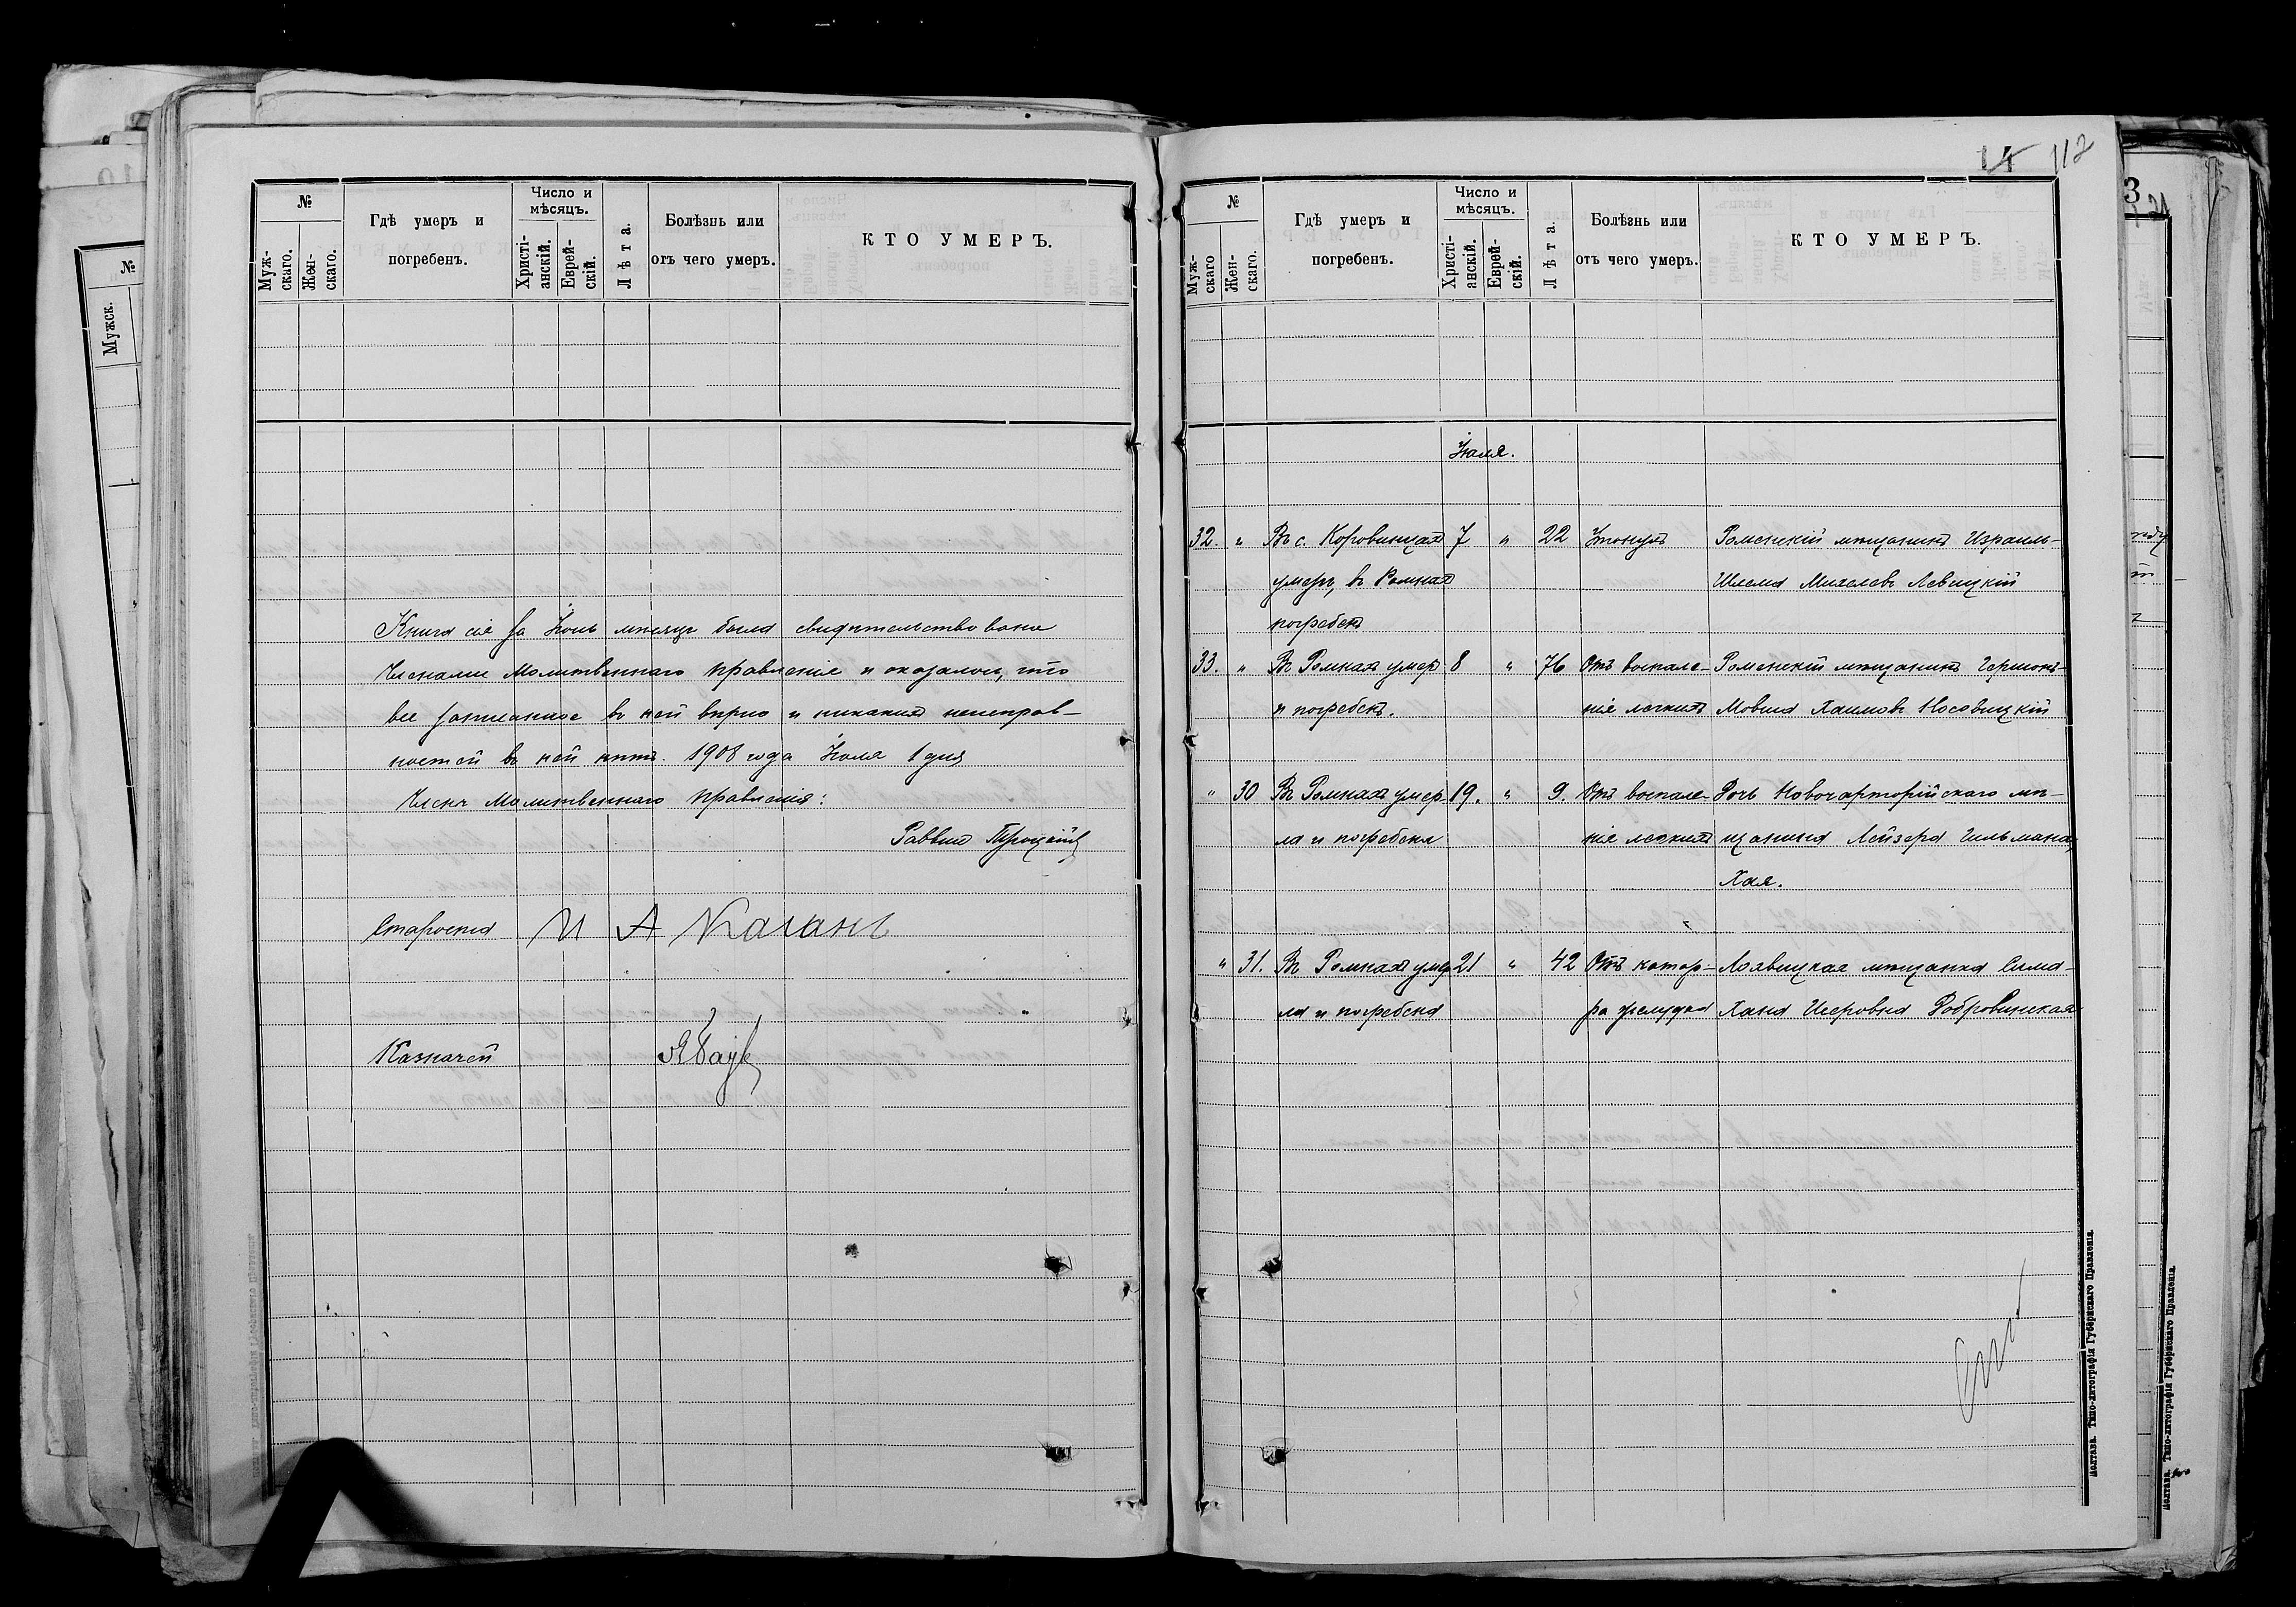 №
Мужск.
№
Муж-
скаго.
Жен-
скаго.
Гдѣ умеръ и
погребенъ.
Число и
мѣсяцъ.
Христі-
анскій.
Еврей-
скій.
Лѣта.
Болѣзнь или
отъ чего умеръ.
КТО УМЕРЪ.
Книга сія за Іюнь мѣсяцъ была свидѣтельствована
Членами Молитвеннаго Правленія и оказалось, что
все записанное въ ней вѣрно и никакихъ неисправ-
ностей въ ней нѣтъ. 1908 года Іюля 1 дня
Члены Молитвеннаго Правленія:
Раввинъ
Староста И А Каганъ
Казначей
14 112
№
Муж-
скаго
Жен-
скаго.
Гдѣ умеръ и
погребенъ.
Число и
мѣсяцъ.
Христі-
анскій.
Еврей-
скій.
Лѣта.
Болѣзнь или
отъ чего умеръ.
КТО УМЕРЪ.
Іюля.
32. " Въ с. Коровинцахъ 7 " 22 Утонулъ Роменскій мѣщанинъ Израиль-
умеръ, въ Ромнахъ Шлема Михелевъ Левицкій
погребенъ
33. " Въ Ромнахъ умеръ 8 " 76 Отъ воспале- Роменскій мѣщанинъ Гершонъ-
и погребенъ. нія легкихъ Мовша Хаимовъ Носовицкій
" 30 Въ Ромнахъ умер- 19. " 9. Отъ воспале- Дочь Новочарторійскаго мѣ-
ла и погребена нія легкихъ щанина Лейзера Гильмана,
Хая.
" 31. Въ Ромнахъ умер- 21 " 42 Отъ катар- Лохвицкая мѣщанка Сима-
ла и погребена ра желудка Хана Исеровна Добровинская
Полтава. Типо-литографія Губернскаго Правленія.
3
Полтава. Типо-литографія Губернскаго Правленія.